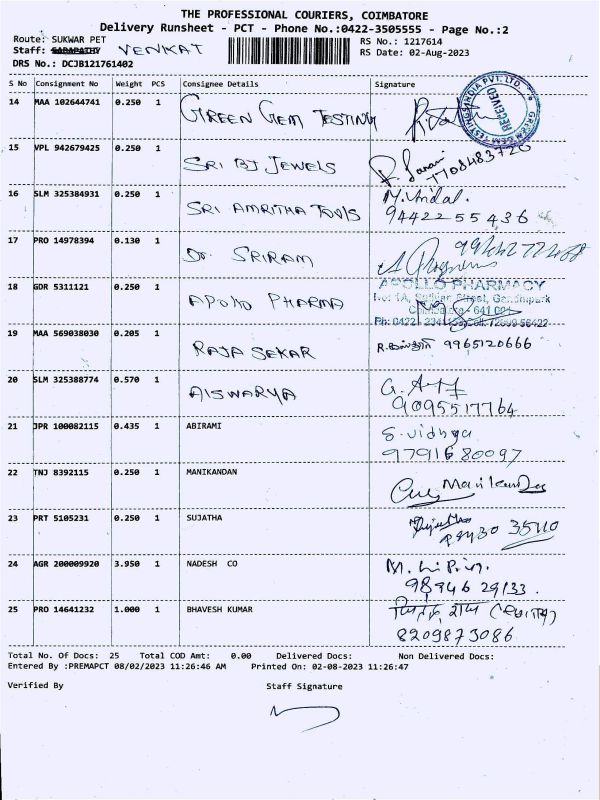 THE PROFESSIONAL COURIERS, COIMBATORE
Delivery Runsheet - PCT - Phone No.:0422-3505555 - Page No.:2
Route: SUKWAR PET
RS No.: 1217614
Staff: GANAPATHY VENKAT
RS Date: 02-Aug-2023
DRS No.: DCJB121761402
S No Consignment No Weight PCS Consignee Details Signature
14 MAA 102644741 0.250 1 GREEN GEM TESTING
GREEN GEM TESTINGS INDIA PVT. LTD. RECEIVED
15 VPL 942679425 0.250 1 SRI BJ JEWELS
7708483720
16 SLM 325384931 0.250 1 SRI AMRITHA TOOLS
9442255436
17 PRO 14978394 0.130 1 DR. SRIRAM
18 GDR 5311121 0.250 1 APOLLO PHARMA
APOLLO PHARMACY
19 MAA 569038030 0.205 1 RAJA SEKAR 9965120666
20 SLM 325388774 0.570 1 AISWARYA
9095517764
21 JPR 100082115 0.435 1 ABIRAMI S. vidhya
9791680097
22 TNJ 8392115 0.250 1 MANIKANDAN
23 PRT 5105231 0.250 1 SUJATHA
24 AGR 200009920 3.950 1 NADESH CO
98946 29133
25 PRO 14641232 1.000 1 BHAVESH KUMAR
8209873086
Total No. Of Docs: 25 Total COD Amt: 0.00 Delivered Docs: Non Delivered Docs:
Entered By :PREMAPCT 08/02/2023 11:26:46 AM Printed On: 02-08-2023 11:26:47
Verified By Staff Signature